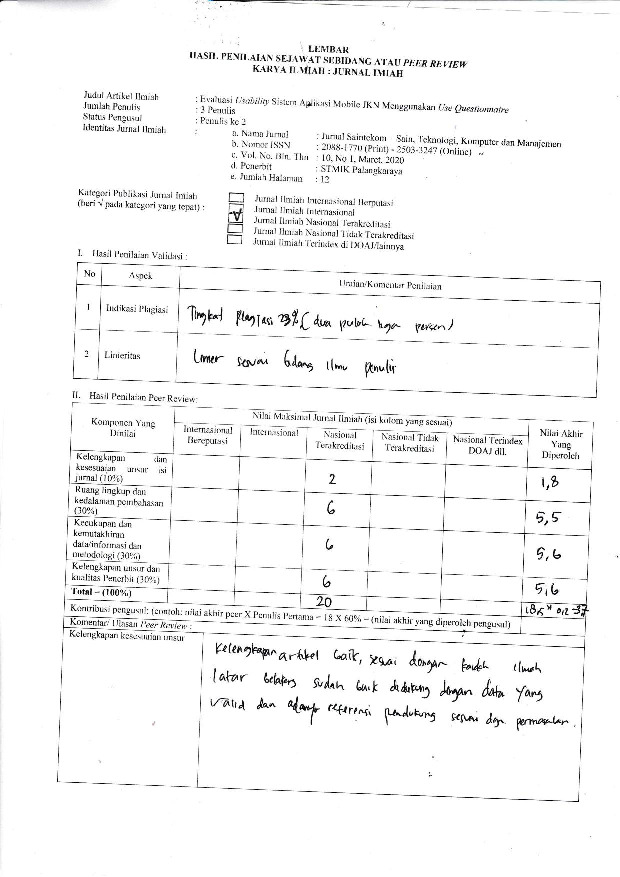 LEMBAR
HASIL PENILAIAN SEJAWAT SEBIDANG ATAU PEER REVIEW
KARYA ILMIAH : JURNAL IMIAH
Judul Artikel Ilmiah : Evaluasi Usability Sistem Aplikasi Mobile JKN Menggunakan Use Questionnaire
Jumlah Penulis : 3 Penulis
Status Pengusul : Penulis ke 2
Identitas Jurnal Ilmiah :
a. Nama Jurnal : Jurnal Saintekom – Sain, Teknologi, Komputer dan Manajemen
b. Nomor ISSN : 2088-1770 (Print) - 2503-3247 (Online)
c. Vol. No. Bln. Thn : 10, No 1, Maret, 2020
d. Penerbit : STMIK Palangkaraya
e. Jumlah Halaman : 12
Kategori Publikasi Jurnal Imiah
(beri √ pada kategori yang tepat) :
Jurnal Ilmiah Internasional Berputasi
Jurnal Ilmiah Internasional
√ Jurnal Ilmiah Nasional Terakreditasi
Jurnal Ilmiah Nasional Tidak Terakreditasi
Jurnal Ilmiah Terindex di DOAJ/lainnya
I. Hasil Penilaian Validasi :
No Aspek Uraian/Komentar Penilaian
1 Indikasi Plagiasi Tingkat plagiasi 23% (dua puluh tiga persen)
2 Linieritas Linier sesuai bidang ilmu penulis
II. Hasil Penilaian Peer Review:
Komponen Yang Dinilai
Nilai Maksimal Jurnal Ilmiah (isi kolom yang sesuai)
Internasional Bereputasi
Internasional
Nasional Terakreditasi
Nasional Tidak Terakreditasi
Nasional Terindex DOAJ dll.
Nilai Akhir Yang Diperoleh
Kelengkapan dan kesesuaian unsur isi jurnal (10%) 2 1,8
Ruang lingkup dan kedalaman pembahasan (30%) 6 5,5
Kecukapan dan kemutakhiran data/informasi dan metodologi (30%) 6 5,6
Kelengkapan unsur dan kualitas Penerbit (30%) 6 5,6
Total = (100%) 20
Kontribusi pengusul: (contoh: nilai akhir peer X Penulis Pertama = 18 X 60% = (nilai akhir yang diperoleh pengusul)
Komentar/ Ulasan Peer Review :
Kelengkapan kesesuaian unsur
Kelengkapan artikel baik, sesuai dengan kaidah ilmiah
latar belakang sudah baik didukung dengan data yang
valid dan referensi pendukung sesuai dgn permasalan.